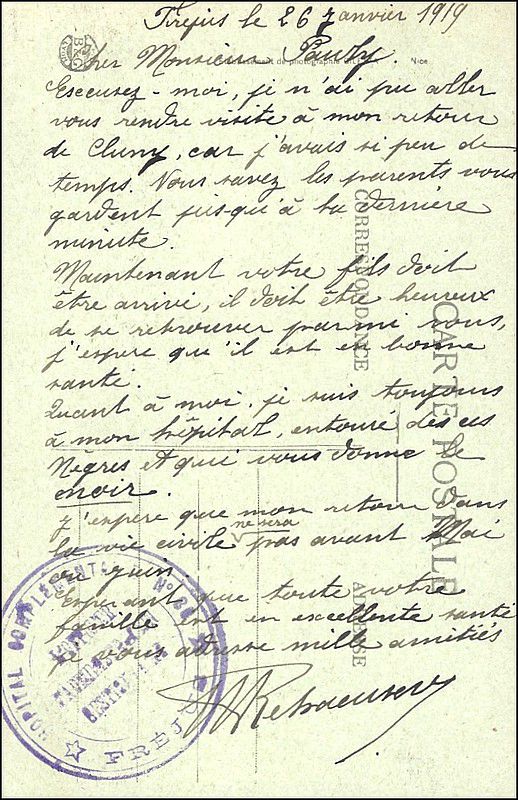 Fréjus le 26 Janvier 1919
Cher Monsieur Pauly.
Escusez-moi, je n'ai pu aller
vous rendre visite à mon retour
de Cluny, car j'avais si peu de
temps. Vous savez les parents vous
gardent jusqu'à la dernière
minute.
Maintenant votre fils doit
être arrivé, il doit être heureux
de se retrouver parmi vous,
j'espere qu'il est en bonne
santé.
Quant à moi, je suis toujours
à mon hôpital, entouré des ces
Nègres et qui vous donne le
J'espere que mon retour dans
la vie civile ne sera pas avant Mai
ou juin.
Esperant que toute votre
famille est en excellente santé
je vous adresse mille amitiés
CORRESPONDANCE
CARTE POSTALE
ADRESSE
Nice
HOPITAL COMPLEMENTAIRE
FRÉJUS